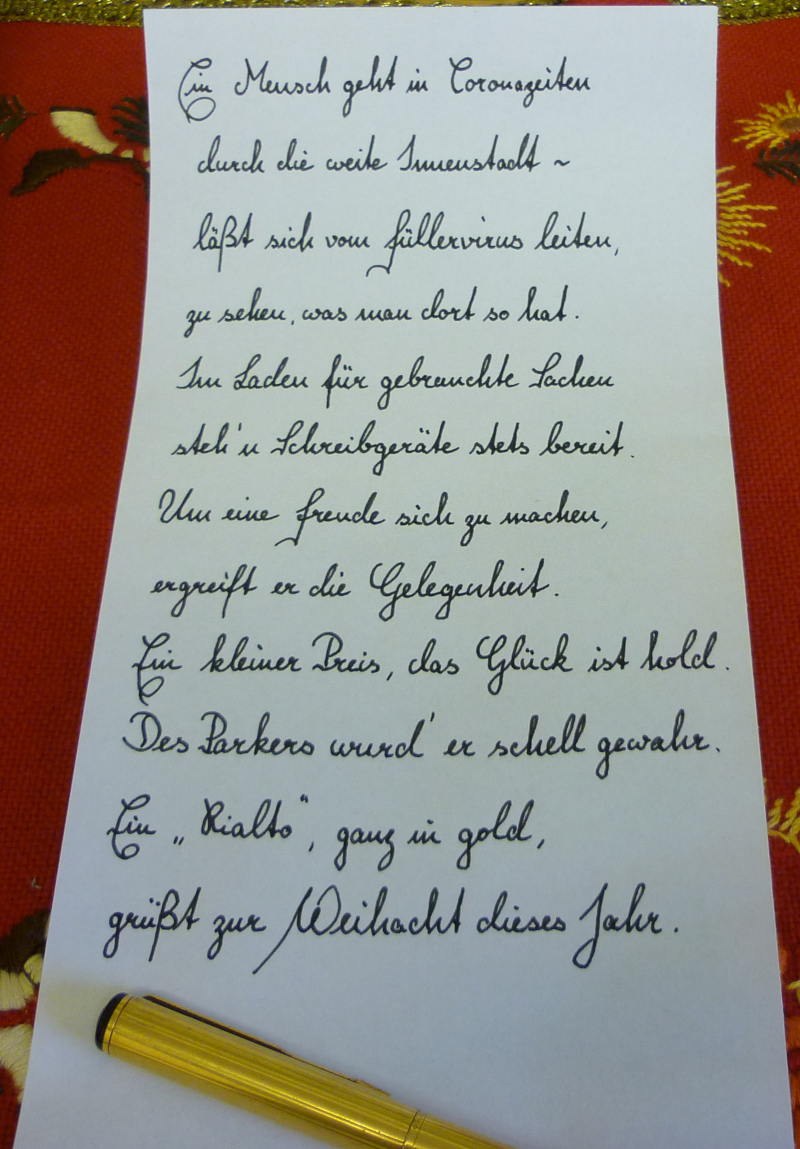 Ein Mensch geht in Coronazeiten
durch die weite Innenstadt ~
läßt sich vom Füllervirus leiten,
zu sehen, was man dort so hat.
Im Laden für gebrauchte Sachen
steh'n Schreibgeräte stets bereit.
Um eine Freude sich zu machen,
ergreift er die Gelegenheit.
Ein kleiner Preis, das Glück ist hold.
Des Parkers wurd' er schell gewahr.
Ein „Rialto", ganz in gold,
grüßt zur Weihacht dieses Jahr.